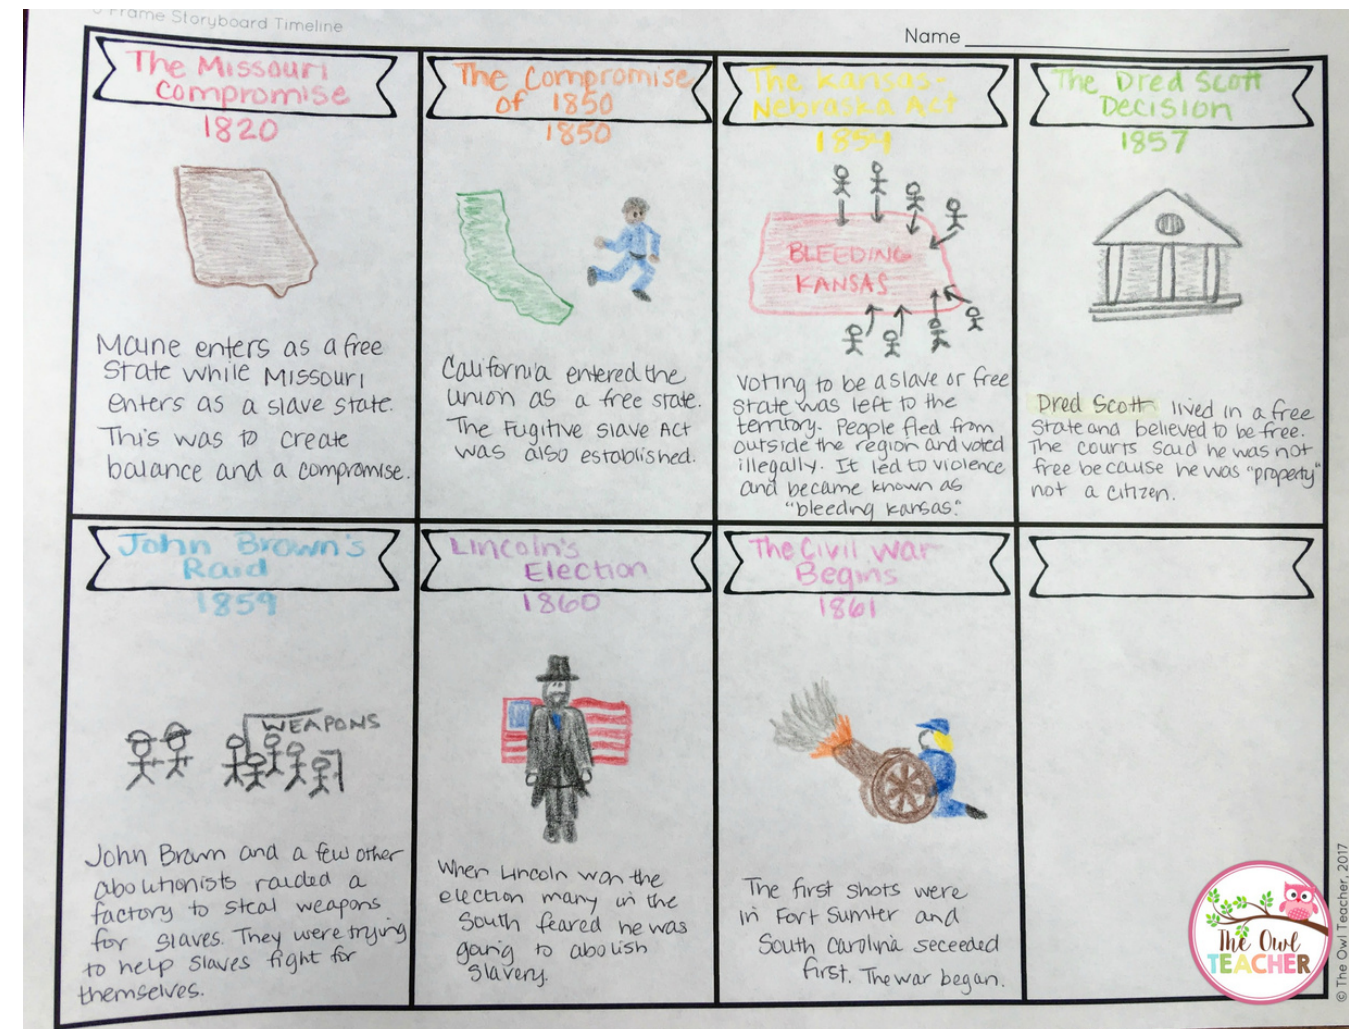 Frame Storyboard Timeline
Name
The Missouri
Compromise
1820
Maine enters as a free
State while Missouri
enters as a slave state.
This was to create
balance and a compromise.
The Compromise
of 1850
1850
California entered the
union as a free state.
The Fugitive Slave Act
was also established.
The Kansas-
Nebraska Act
1854
BLEEDING
KANSAS
Voting to be a slave or free
State was left to the
territory. People fled from
outside the region and voted
illegally. It led to violence
and became known as
"bleeding Kansas."
The Dred Scott
Decision
1857
Dred Scott lived in a free
State and believed to be free.
The courts said he was not
free because he was "property"
not a citizen.
John Brown's
Raid
1859
WEAPONS
John Brown and a few other
abolitionists raided a
factory to steal weapons
for slaves. They were trying
to help slaves fight for
themselves.
Lincoln's
Election
1860
When Lincoln won the
election many in the
South feared he was
going to abolish
slavery.
The Civil War
Begins
1861
The first shots were
in Fort Sumter and
South Carolina seceeded
first. The war began.
The Owl
TEACHER
© The Owl Teacher, 2017